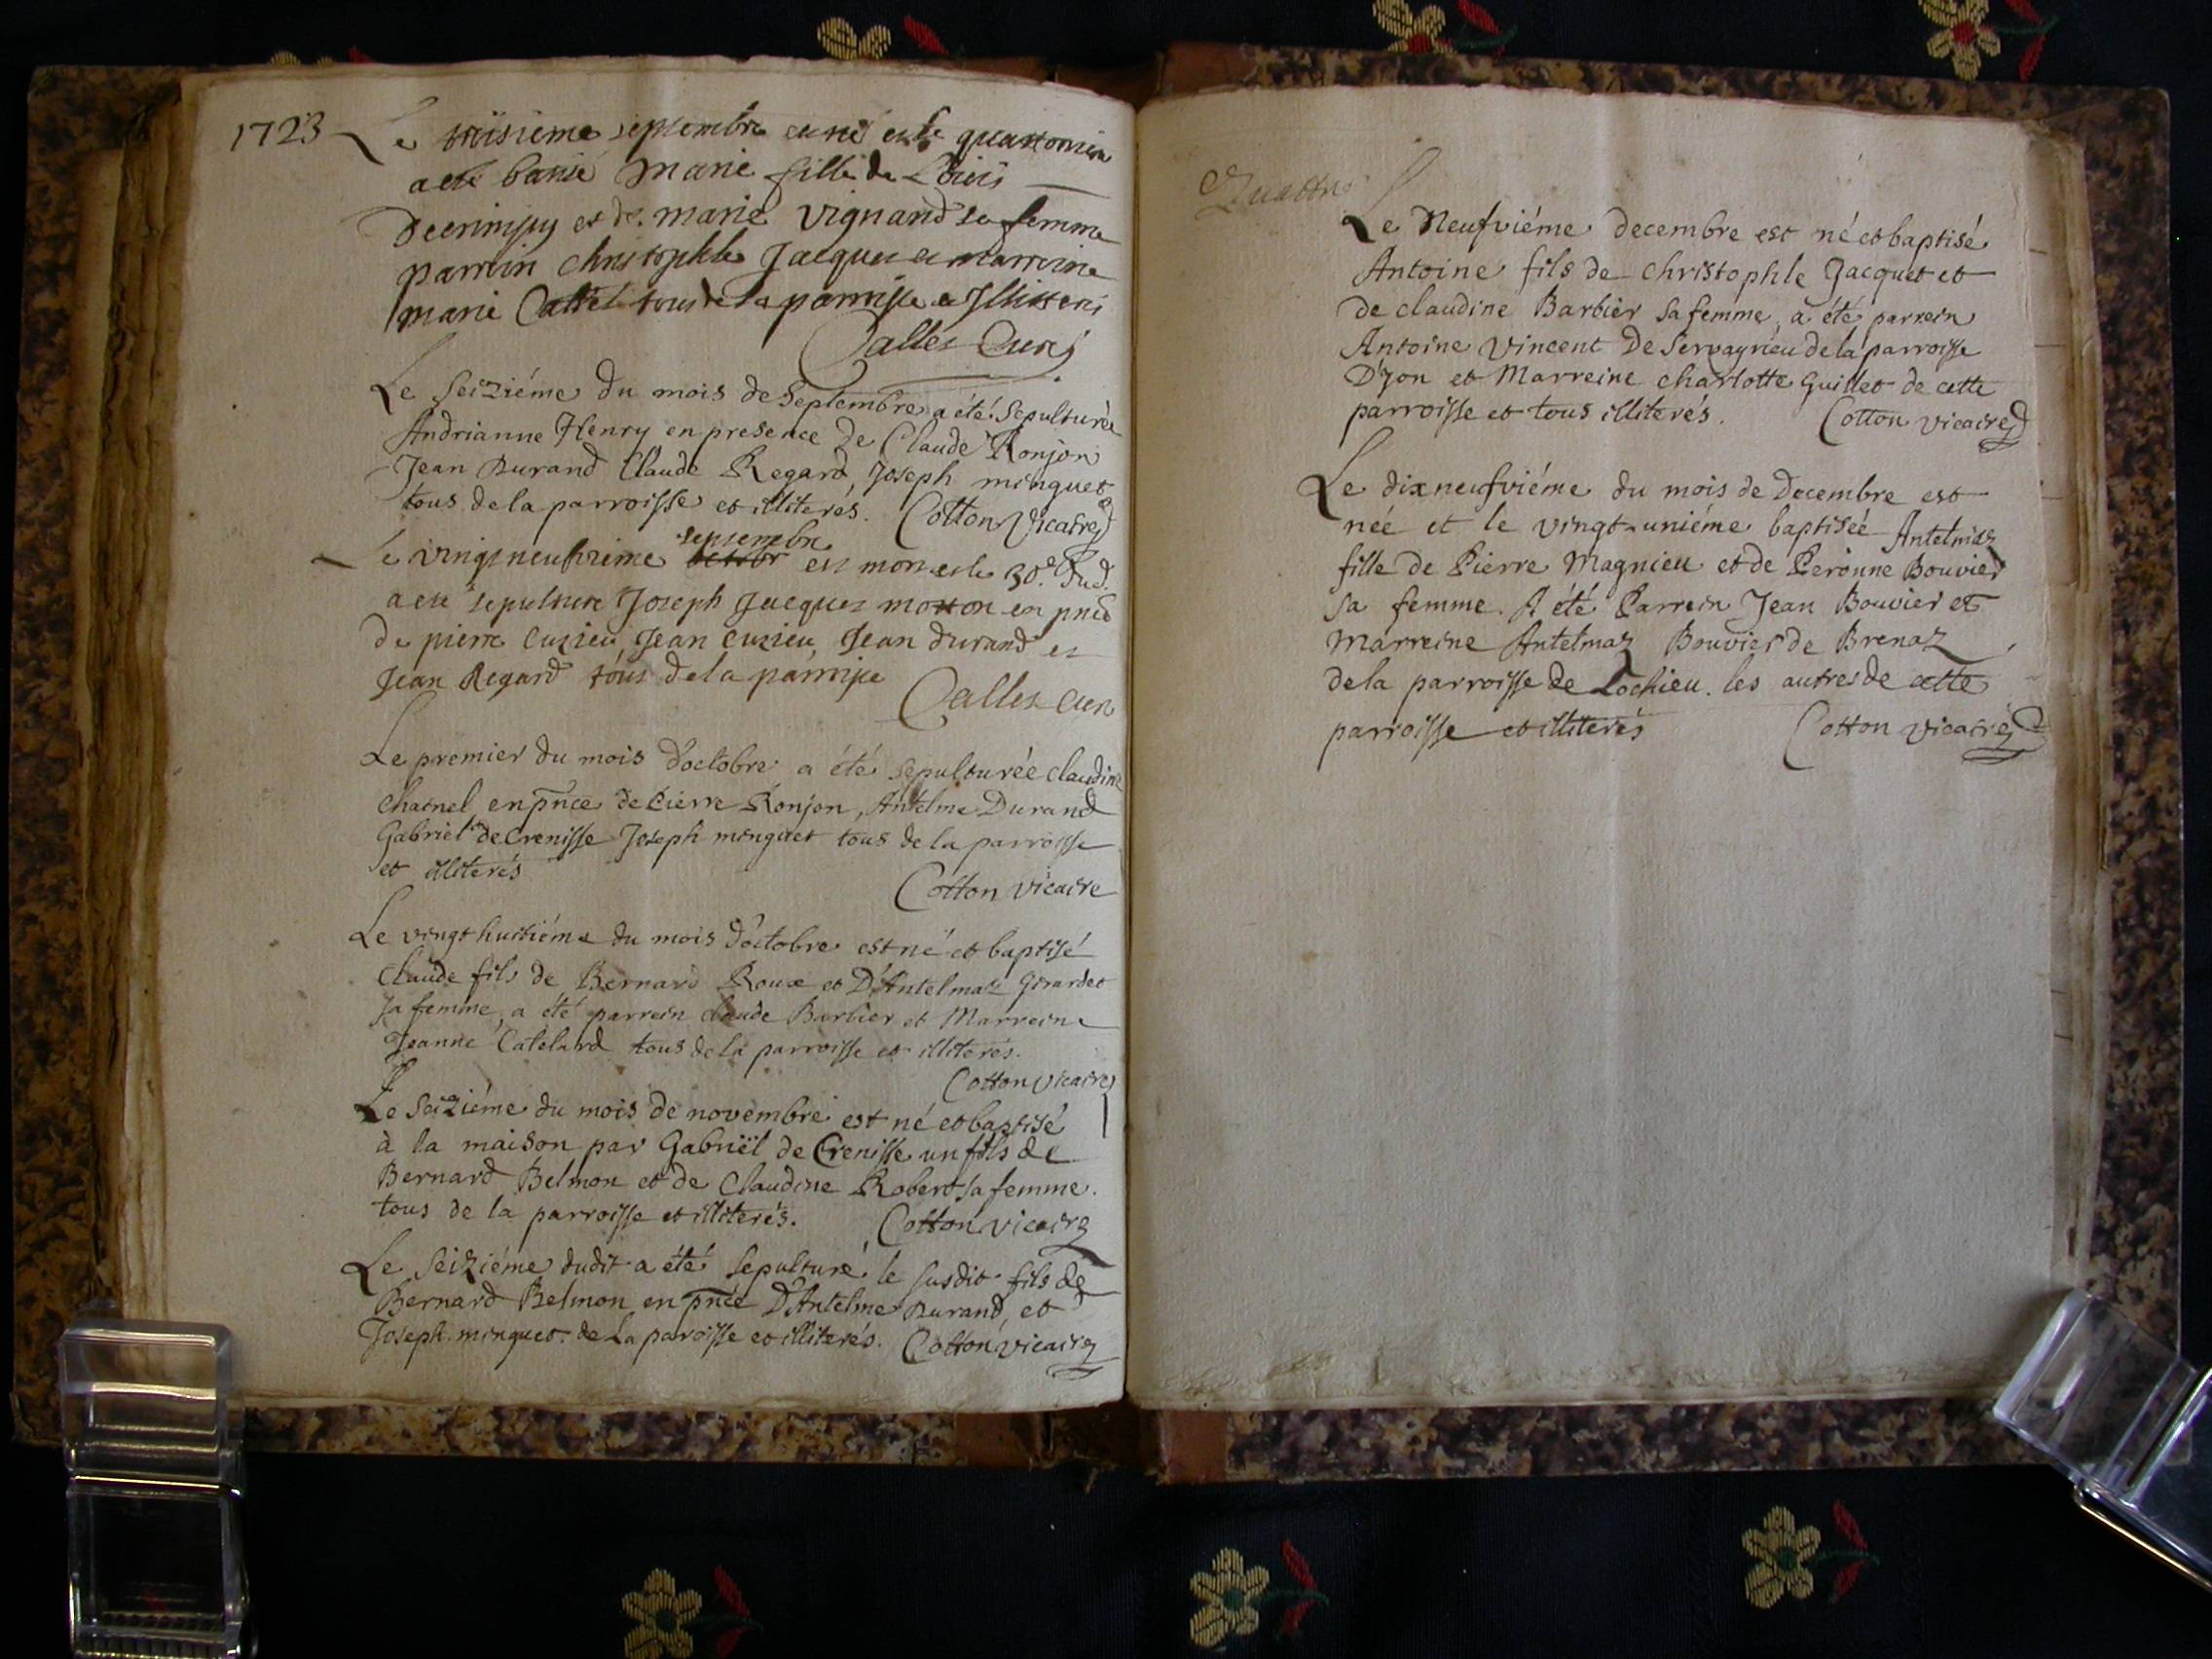 1723
Le troisieme septembre est né et le quatorzieme
a eté batisé Marie fille de
Decrenisse et de marie Vignand sa femme
parrein christophle Jacques et marreine
marie Cattel tous de la parroisse et Illitterés
Calles Curé
Le seiziéme du mois de Septembre a été Sepulturée
Andrianne Henry en presence de Claude Ronjon
Jean Durand Claude Regard, Joseph minguet
tous de la parroisse et illiterés. Cotton Vicaire
septembre
Le vingt neufvieme octobr est mort et le 30.e dud.
a eté sepulturé Joseph Jacques motton en pnce
de pierre Cuzieu Jean Cuzieu, Jean durand et
Jean Regard tous de la parroisse
Calles Curé
Le premier du mois d'octobre a été sepulturée claudine
charnel en pnce de Pierre Ronjon, Antelme Durand
Gabriel de Crenisse Joseph minguet tous de la parroisse
et illiterés
Cotton Vicaire
Le vingt huitiéme du mois d'octobre est né et baptisé
Claude fils de Bernard Roux et D'Antelmaz Girardet
sa femme, a été parrein claude Barbier et Marreine
Jeanne Catelard tous de la parroisse et illiterés.
Cotton vicaire
Le Seiziéme du mois de novembre est né et baptisé
à la maison par Gabriël de Crenisse un fils de
Bernard Belmon et de Claudine Robert sa femme.
tous de la parroisse et illiterés. Cotton vicaire
Le seiziéme dudit a été sepulturé le susdit fils de
Bernard Belmon en pnce D'Antelme Durand, et
Joseph minguet de La paroisse et illiterés. Cotton vicaire
Quattre
Le Neufviéme decembre est né et baptisé
Antoine fils de christophle Jacquet et
de claudine Barbier sa femme, a été parrein
Antoine Vincent De Servagrieu de la parroisse
D'yon et Marreine charlotte Guillet de cette
parroisse et tous illiterés. Cotton vicaire
Le dixneufviéme du mois de Decembre est
née et le vingt-uniéme baptiséé Antelmaz
fille de Pierre Magnieu et de Peronne Bouvier
sa femme. A été Parrein Jean Bouvier et
Marreine Antelmaz Bouvier de Brenaz
de la parroisse de Lochieu. les autres de cette
parroisse et illiterés Cotton vicaire